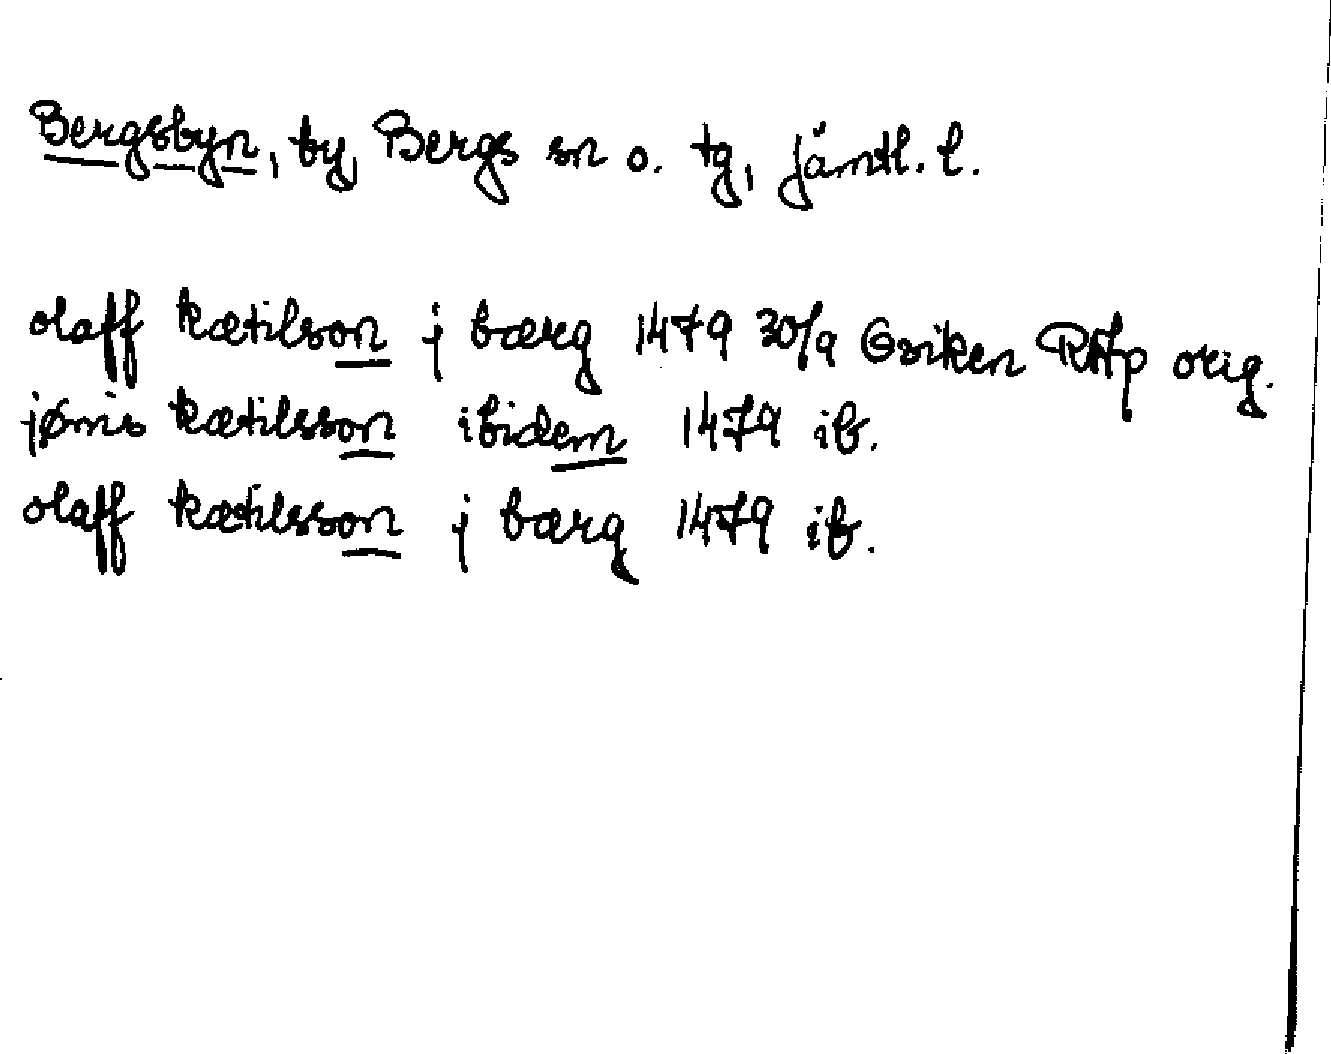 Bergsbyn, by, Bergs sn o. tg, Jämtl. l.
olaff kætilson j bærg 1479 30/9 Oviken RAp orig.
jønis kætilsson ibidem 1479 ib.
olaff kætilsson j bærg 1479 ib.